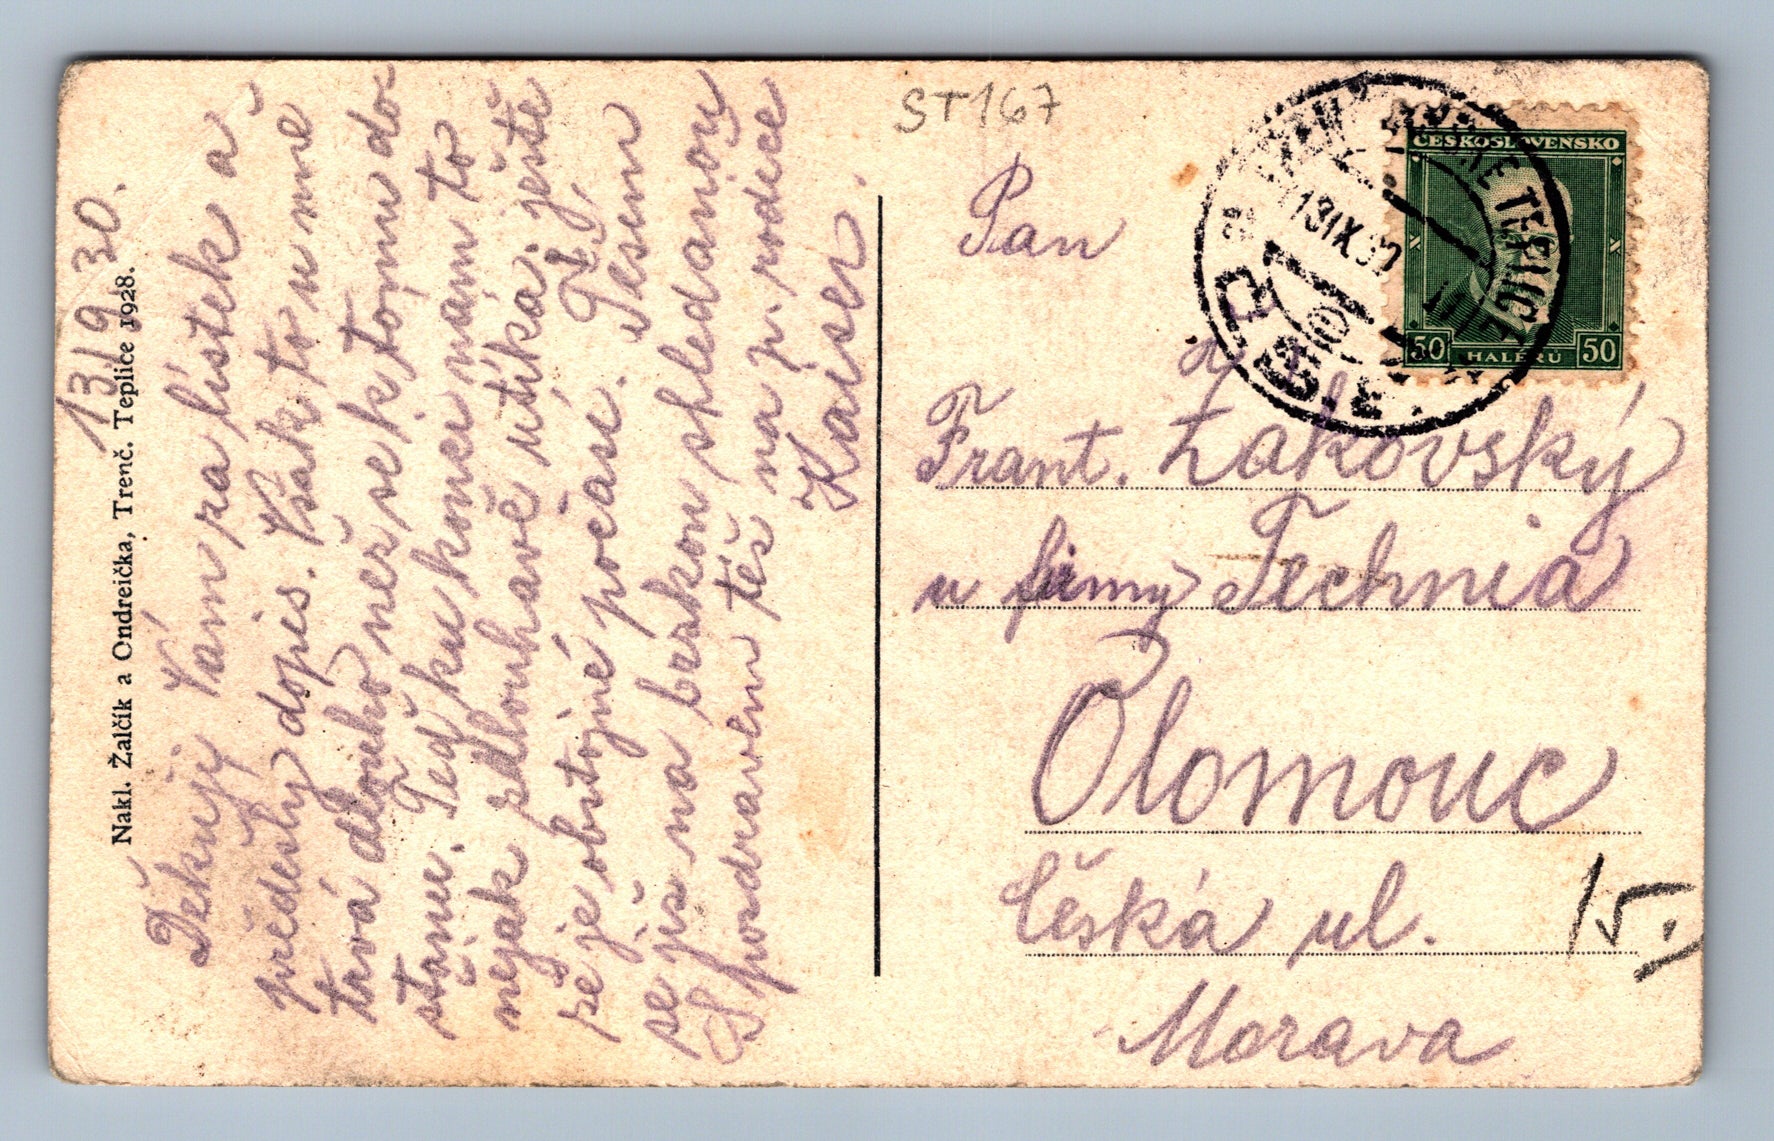 13/9 30.
Nakl. Žalčík a Ondreička, Trenč. Teplice 1928.
Děkuji Vám za lístek a
předešlý dopis. Však to u mně
trvá dlouho než se k tomu do-
stanu. Teď ku konci nám to
nějak zdlouhavě utíká, ještě
že je obstojné počasí. Těším
se již na brzkou shledanou
S pozdravem též na p. rodiče
Kaiser.
ST167
ČESKOSLOVENSKO
50 HALÉŘŮ 50
TEPLICE
13 IX 30
Pan
Frant. Žákovský
u firmy Technia
Olomouc
Česká ul. 15.
Morava